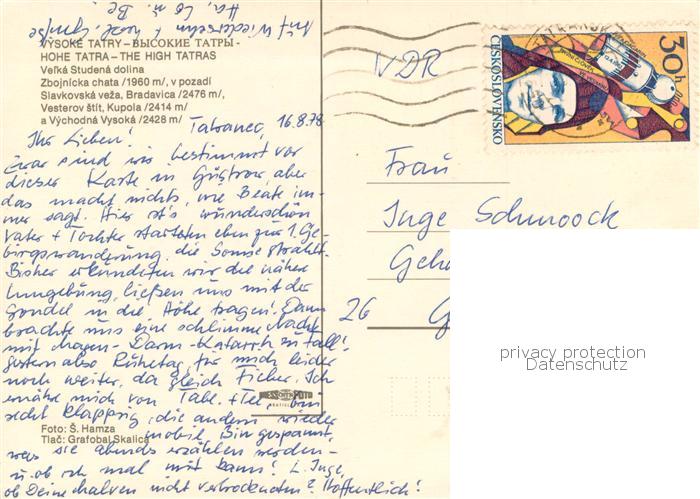 Auf Wiedersehn + herzl. Grüße
Ha, Lo u. Be
VYSOKÉ TATRY – ВЫСОКИЕ ТАТРЫ -
HOHE TATRA – THE HIGH TATRAS
Veľká Studená dolina
Zbojnícka chata /1960 m/, v pozadí
Slavkovská veža, Bradavica /2476 m/,
Vesterov štít, Kupola /2414 m/
a Východná Vysoká /2428 m/
Tatranec, 16.8.78
Ihr Lieben!
Zwar sind wir bestimmt vor
dieser Karte in Güstrow aber
das macht nichts, wie Beate im-
mer sagt. Hier ist's wunderschön
Vater + Tochter starteten eben zur 1. Ge-
birgswanderung, die Sonne strahlt.
Bisher erkundeten wir die nähere
Umgebung, ließen uns mit der
Gondel in die Höhe tragen! Dann
brachte uns eine schlimme Nacht
mit Magen-Darm-Katarrh zu Fall!
Gestern also Ruhetag, für mich leider
noch weiter, da gleich Fieber. Ich
ernähre mich von Tabl. + Tee, bin
recht klapprig, die andern wieder
mobil. Bin gespannt,
was sie abends erzählen werden –
u. ob ich mal mit kann! L. Inge,
ob Deine Malven nicht vertrockneten? Hoffentlich!
PRESSFOTO
Foto: Š. Hamza
Tlač: Grafobal Skalica
VDR
ČESKOSLOVENSKO
30h
Frau
Inge Schmoock
26 G
privacy protection
Datenschutz